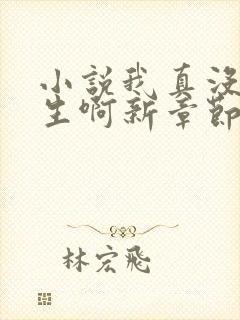 小說我真没
生啊新章節
林宏飛